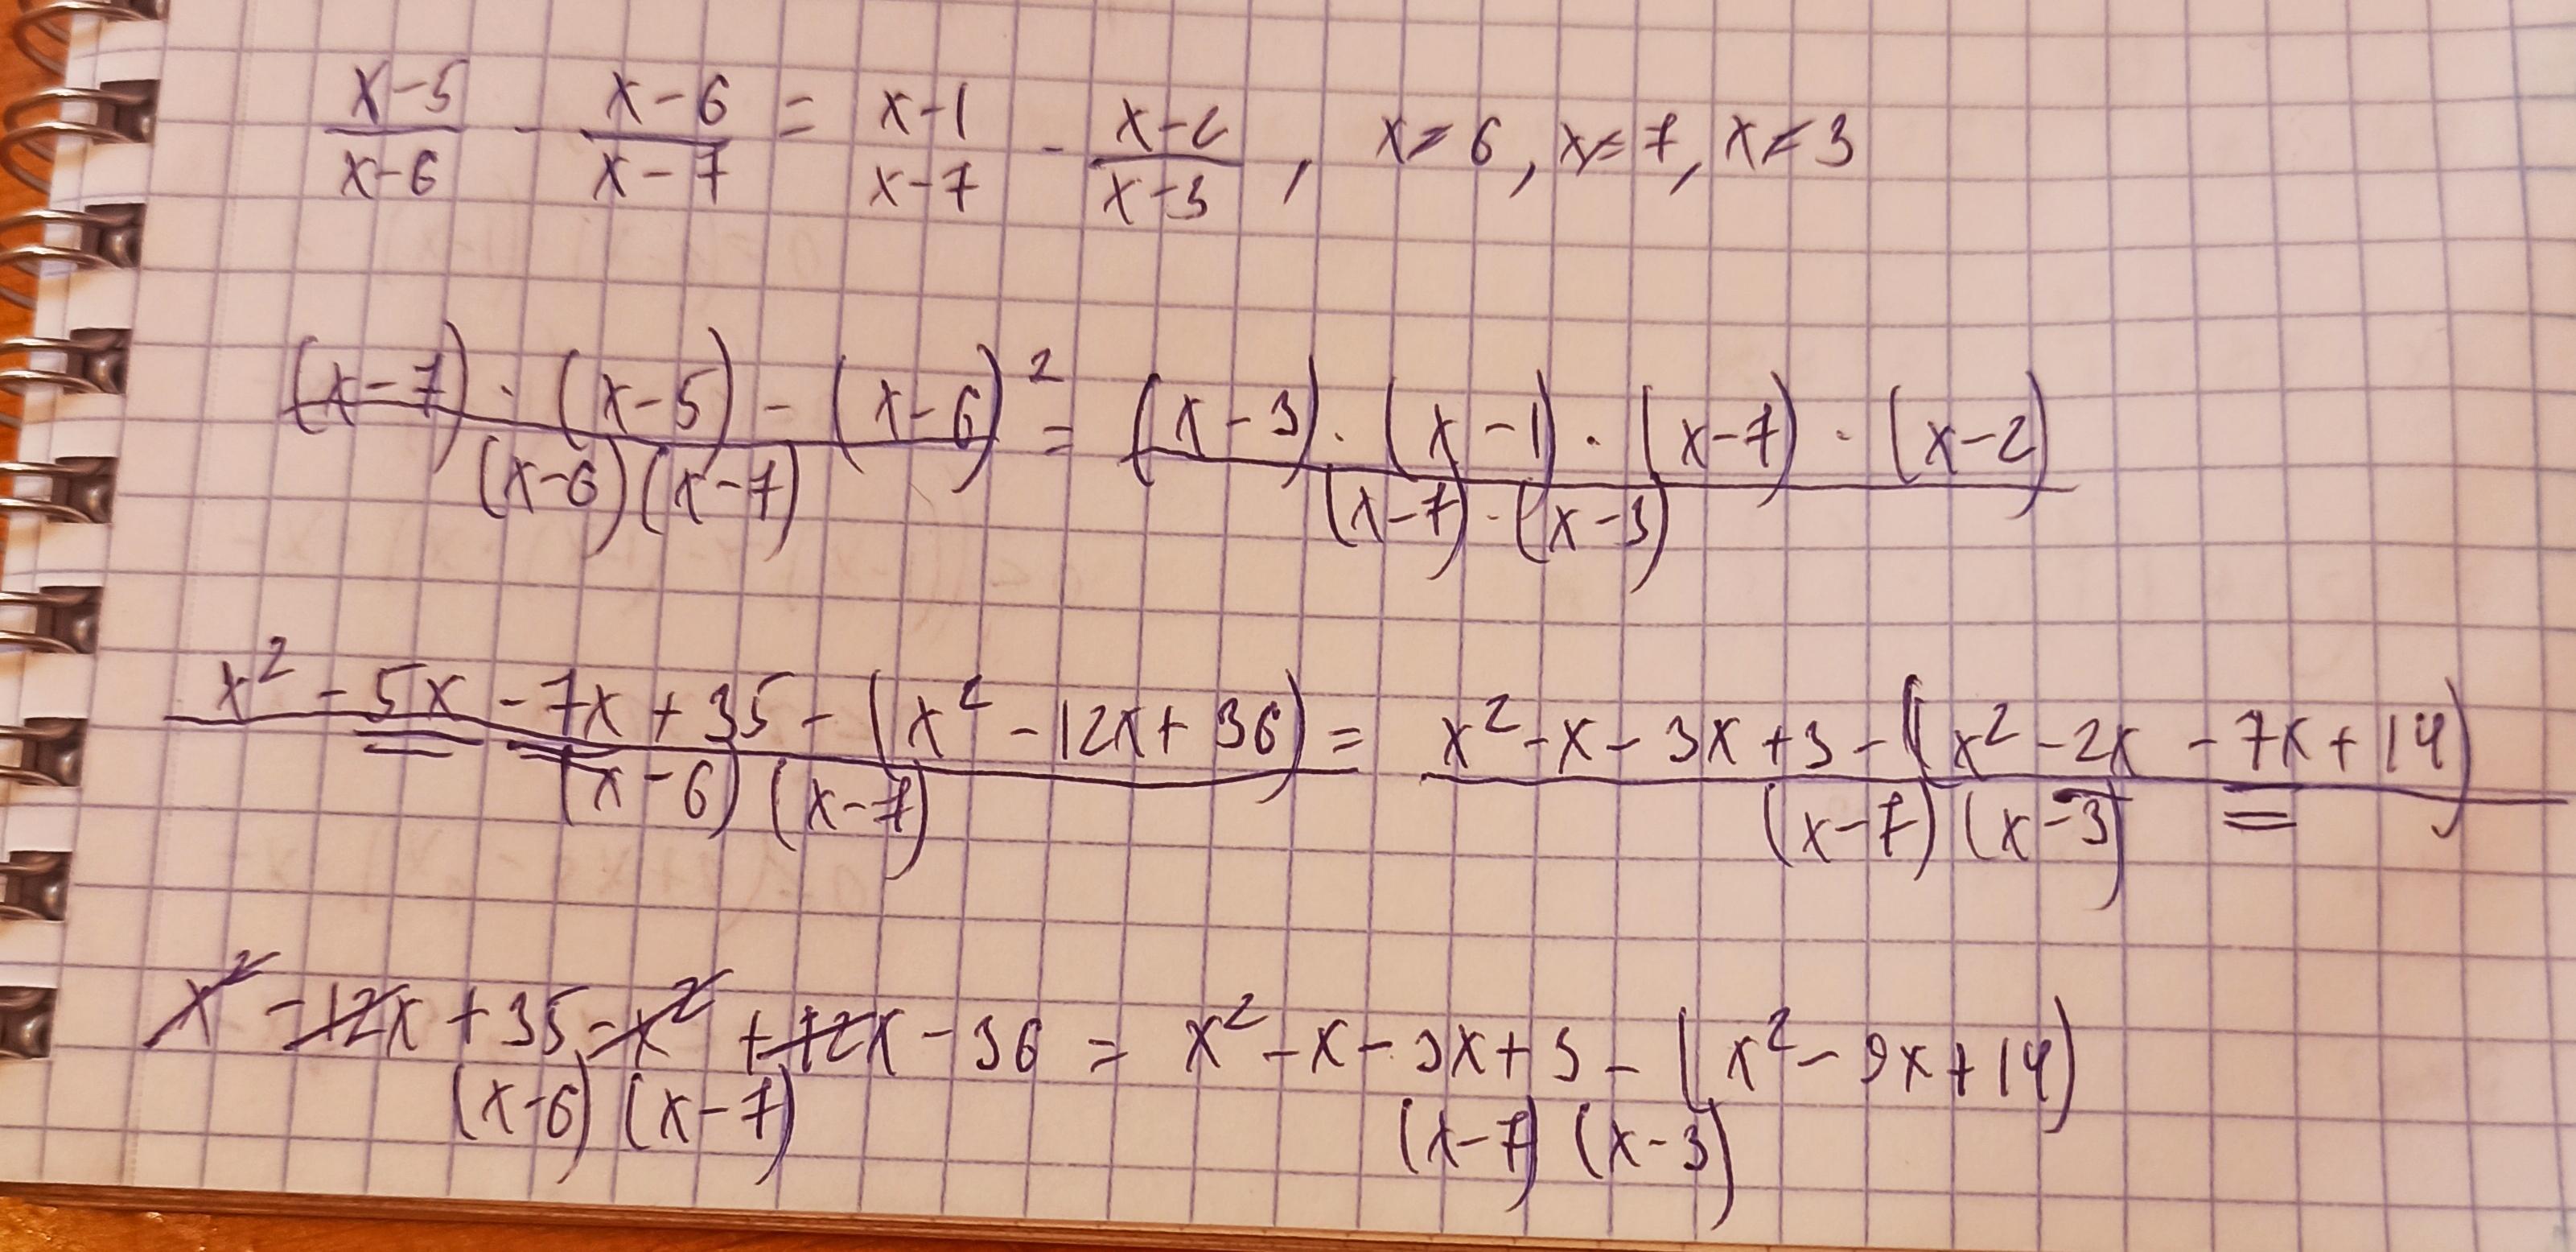 (x-5)/(x-6) - (x-6)/(x-7) = (x-1)/(x-7) - (x-2)/(x-3), x≠6, x≠7, x≠3
((x-7)·(x-5)-(x-6)²)/((x-6)(x-7)) = ((x-3)·(x-1)·(x-7)·(x-2))/((x-7)·(x-3))
(x²-5x-7x+35-(x²-12x+36))/((x-6)(x-7)) = (x²-x-3x+3-(x²-2x-7x+14))/((x-7)(x-3))
(x²-12x+35-x²+12x-36)/((x-6)(x-7)) = (x²-x-3x+3-(x²-9x+14))/((x-7)(x-3))